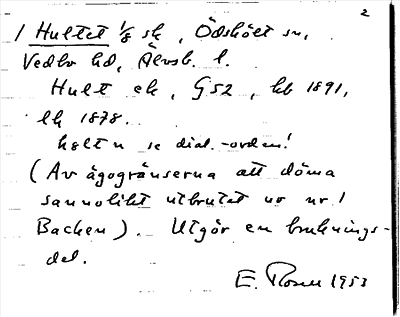 2
1 Hultet 1/8 sk, Ödsköls sn,
Vedbo hd, Älvsb. l.
Hult ek, G52, hb 1891,
lk 1878.
hølt n se dial.-orden!
(Av ägogränserna att döma
sannolikt utbrutet ur nr 1
Backen). Utgör en bruknings-
del.
E. Rosen 1953